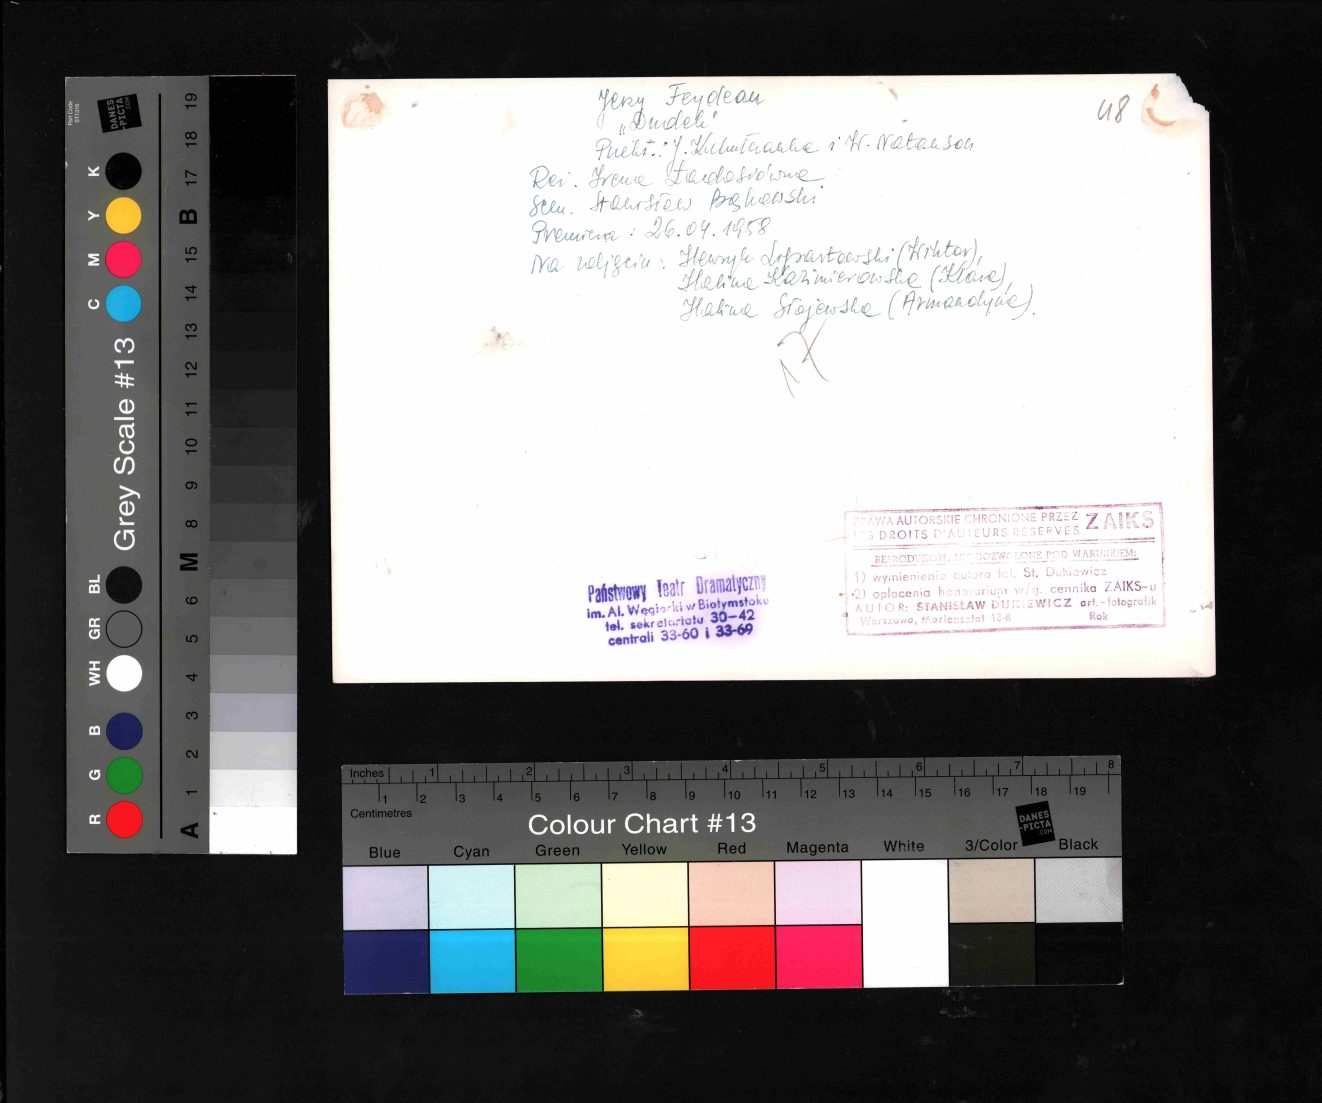 Jerzy Feydeau
„Dudek"
Przekł.: J. i W. Natanson
Reż. Irena
Scen. Stanisław Bąkowski
Premiera: 26.04.1958
Na zdjęciu: Henryk (Wiktor),
Halina Kazimierowska (Klara),
Halina (Armandyna).
48
17
Państwowy Teatr Dramatyczny
im. Al. Węgierki w Białymstoku
tel. sekretariatu 30-42
centrali 33-60 i 33-69
PRAWA AUTORSKIE CHRONIONE PRZEZ ZAIKS
LES DROITS D'AUTEURS RESERVES
REPRODUKOWANIE DOZWOLONE POD WARUNKIEM:
1) wymienienie autora fot. St. Dukiewicz
2) opłacenia honorarium w/g. cennika ZAIKS-u
AUTOR: STANISŁAW DUKIEWICZ art.-fotografik
Warszawa, Mariensztat 13-8 Rok
Part Code
ST1316
DANES
-PICTA
.COM
Grey Scale #13
R G B WH GR BL C M Y K
A 1 2 3 4 5 6 M 8 9 10 11 12 13 14 15 B 17 18 19
Inches 1 2 3 4 5 6 7 8
1 2 3 4 5 6 7 8 9 10 11 12 13 14 15 16 17 18 19
Centimetres
Colour Chart #13
DANES
-PICTA
.COM
Blue Cyan Green Yellow Red Magenta White 3/Color Black